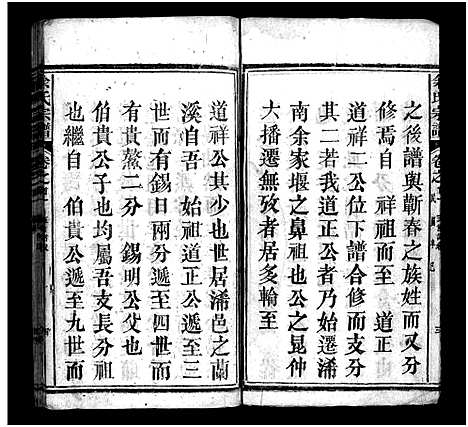 之後譜與蘄春之族姓而又分
修焉至　祥祖而　道正
道祥二公位下譜合修而支分
其二若我道正公者乃始遷浠
南余家堰之鼻祖也公之昆仲
大播遷無攷者居多輸至
道祥公其少也世居浠邑之蘭
溪自吾　如海公遞至三
世而有錫日兩分遞至四世而
有貴鰲二分　錫明公父也
伯貴公子也均屬吾支長分祖
也繼自　伯貴公遞至九世而
余氏宗譜